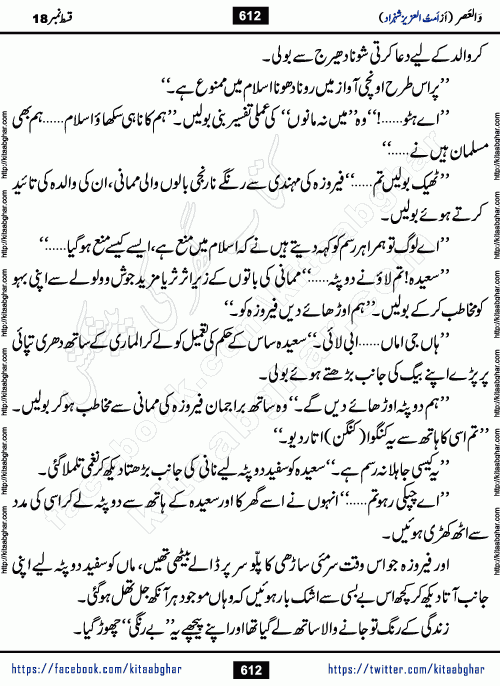 وَالعَصر (از اَمتُ العزیز شہزاد)
612
قسط نمبر 18
کر والد کے لیے دعا کرتی شونا دھیرج سے بولی۔
’’پر اس طرح اونچی آواز میں رونا دھونا اسلام میں ممنوع ہے۔‘‘
’’اے ہٹو......!‘‘ وہ ’’میں نہ مانوں‘‘ کی عملی تفسیر بنی بولیں۔ ’’ہم کا ناہی سکھاؤ اسلام...... ہم بھی
مسلمان ہیں نے......‘‘
’’ٹھیک بولیں تم......‘‘ فیروزہ کی مہندی سے رنگے نارنجی بالوں والی ممانی، ان کی والدہ کی تائید
کرتے ہوئے بولیں۔
’’اے لوگ تو ہمرا ہر رسم کو کہہ دیتے ہیں نے کہ اسلام میں منع ہے، ایسے کیسے منع ہو گیا......‘‘
’’سعیدہ! تم لاؤ نے دوپٹہ......‘‘ ممانی کی باتوں کے زیر اثر ثریا مزید جوش و ولولے سے اپنی بہو
کو مخاطب کر کے بولیں۔ ’’ہم اوڑھائے دیں فیروزہ کو۔‘‘
’’ہاں جی اماں...... ابی لائی۔‘‘ سعیدہ ساس کے حکم کی تعمیل کو لے کر الماری کے ساتھ دھری تپائی
پر پڑے اپنے بیگ کی جانب بڑھتے ہوئے بولی۔
’’ہم دوپٹہ اوڑھائے دیں گے۔‘‘ وہ ساتھ براجمان فیروزہ کی ممانی سے مخاطب ہو کر بولیں۔
’’تم اسی کا ہاتھ سے یہ کنگوا (کنگن) اتار دیو۔‘‘
’’یہ کیسی جاہلانہ رسم ہے۔‘‘ سعیدہ کو سفید دوپٹہ لیے نانی کی جانب بڑھتا دیکھ کر نغمی تلملا گئی۔
’’اے چپکی رہو تم......‘‘ انہوں نے اسے گھر کا اور سعیدہ کے ہاتھ سے دوپٹہ لے کر اسی کی مدد
سے اٹھ کھڑی ہوئیں۔
اور فیروزہ جو اس وقت سرمئی ساڑھی کا پلّو سر پر ڈالے بیٹھی تھیں، ماں کو سفید دوپٹہ لیے اپنی
جانب آتا دیکھ کر کچھ اس بے بسی سے اشک بار ہوئیں کہ وہاں موجود ہر آنکھ جل تھل ہو گئی۔
زندگی کے رنگ تو جانے والا ساتھ لے گیا تھا اور اپنے پیچھے یہ ’’بے رنگی‘‘ چھوڑ گیا۔
http://kitaabghar.com
کتاب گھر کی پیشکش
facebook.com/kitaabghar
kitaabghar.com
https://facebook.com/kitaabghar
612
https://twitter.com/kitaabghar